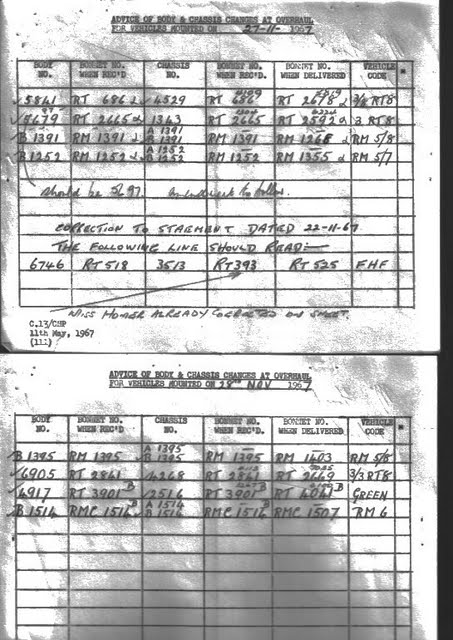 ADVICE OF BODY & CHASSIS CHANGES AT OVERHAUL
FOR VEHICLES MOUNTED ON 27-11- 1967
BODY NO. BONNET NO. WHEN REC'D CHASSIS NO. BONNET NO. WHEN REC'D. BONNET NO. WHEN DELIVERED VEHICLE CODE *
5841 RT 686 4529 RT 686 RT 2678 3/3 RT8
5679 RT 2665 1343 RT 2665 RT 2592 3 RT8
B 1391 RM 1391 A 1391 B 1391 RM 1391 RM 1268 RM 5/8
B 1252 RM 1252 A 1252 B 1252 RM 1252 RM 1355 RM 5/7
Should be 5697. to follow.
CORRECTION TO STAEMENT DATED 22-11-67
THE FOLLOWING LINE SHOULD READ:-
6746 RT 518 3513 RT 393 RT 525 FHF
MISS HOMER ALREADY CORRECTED ON SHEET.
C.13/CHP
11th May, 1967
(111)
ADVICE OF BODY & CHASSIS CHANGES AT OVERHAUL
FOR VEHICLES MOUNTED ON 28TH NOV 1967
BODY NO. BONNET NO. WHEN REC'D CHASSIS NO. BONNET NO. WHEN REC'D. BONNET NO. WHEN DELIVERED VEHICLE CODE *
B 1395 RM 1395 A 1395 B 1395 RM 1395 RM 1403 RM 5/8
6905 RT 2841 4268 RT 2841 RT 2649 3/3 RT8
4917 RT 3901 B 2516 RT 3901 B RT 4041 B GREEN
B 1514 RMC 1514 A 1514 B 1514 RMC 1514 RMC 1507 RM 6